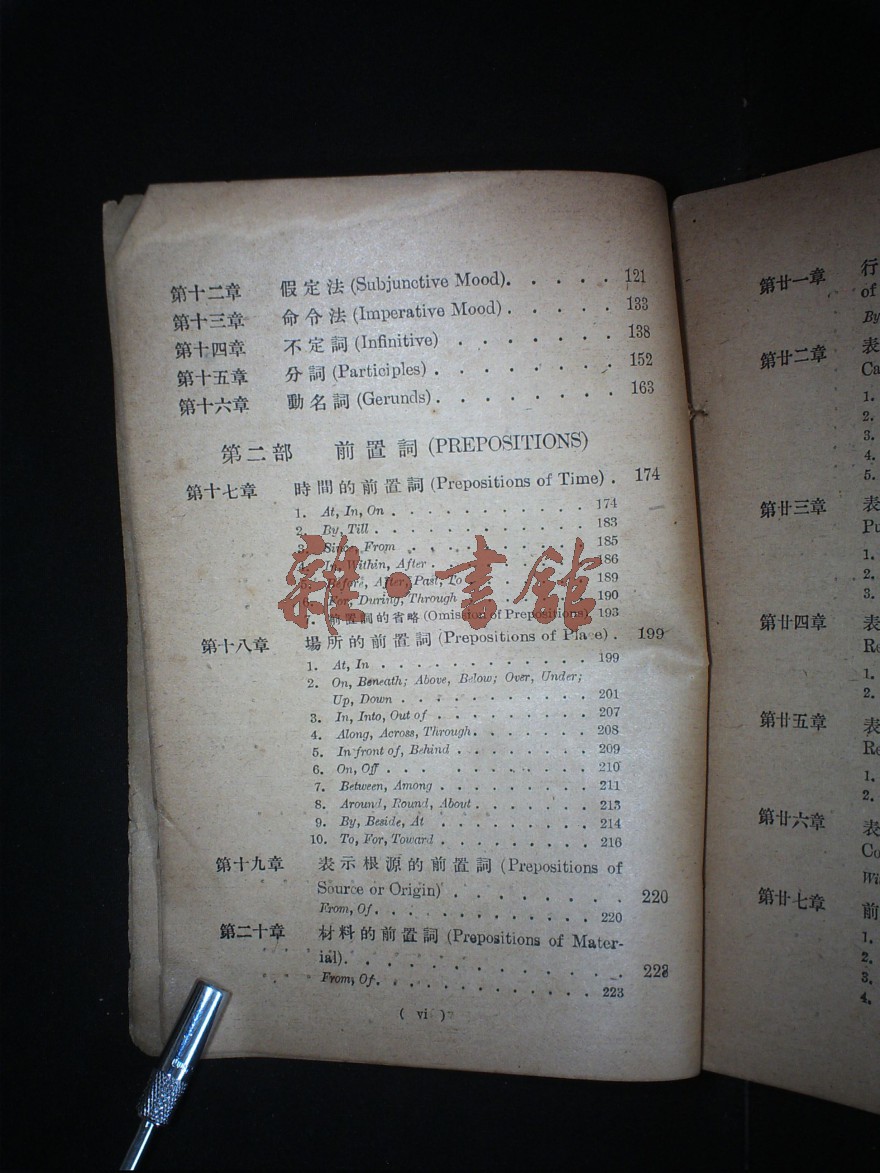 第十二章 假定法 (Subjunctive Mood). . . . . . 121
第十三章 命令法 (Imperative Mood) . . . . . . 133
第十四章 不定詞 (Infinitive) . . . . . . . 138
第十五章 分詞 (Participles) . . . . . . . . 152
第十六章 動名詞 (Gerunds). . . . . . . . 163
第二部 前置詞 (PREPOSITIONS)
第十七章 時間的前置詞 (Prepositions of Time) . 174
1. At, In, On . . . . . . . . . . . 174
2. By, Till . . . . . . . . . . . . 183
3. Since, From . . . . . . . . . . 185
4. In, Within, After . . . . . . . . 186
5. Before, After, Past, To . . . . . . 189
6. For, During, Through . . . . . . . 190
7. 前置詞的省略 (Omission of Prepositions). 193
第十八章 場所的前置詞 (Prepositions of Place) . 199
1. At, In . . . . . . . . . . . . 199
2. On, Beneath; Above, Below; Over, Under;
Up, Down . . . . . . . . . . . 201
3. In, Into, Out of . . . . . . . . . 207
4. Along, Across, Through. . . . . . . 208
5. In front of, Behind . . . . . . . . 209
6. On, Off . . . . . . . . . . . 210
7. Between, Among . . . . . . . . . 211
8. Around, Round, About . . . . . . . 213
9. By, Beside, At . . . . . . . . . 214
10. To, For, Toward . . . . . . . . . 216
第十九章 表示根源的前置詞 (Prepositions of
Source or Origin) . . . . . . . . 220
From, Of. . . . . . . . . . . . 220
第二十章 材料的前置詞 (Prepositions of Mater-
ial). . . . . . . . . . . . . 223
From, Of. . . . . . . . . . . . 223
( vi )
雜·書館
第廿一章 行
of
By
第廿二章 表
Ca
1.
2.
3.
4.
5.
第廿三章 表
Pu
1.
2.
3.
第廿四章 表
Re
1.
2.
第廿五章 表
Re
1.
2.
第廿六章 表
Co
Wi
第廿七章 前
1.
2.
3.
4.